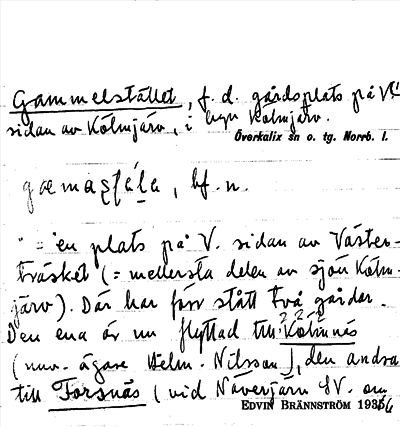 Gammelstället, f. d. gårdsplats på V.
sidan av Kölmjärv, i byn Kölmjärv.
Överkalix sn o. tg. Norrb. l.
bf. n.
= en plats på V. sidan av Väster-
träsket (= mellersta delen av sjön Kölm-
järv). Där har förr stått två gårdar.
Den ena är nu flyttad till Kölmnäs
(nuv. ägare Helm. Nilsson), den andra
till Forsnäs (vid Näverjärv SV. om
EDVIN BRÄNNSTRÖM 1935